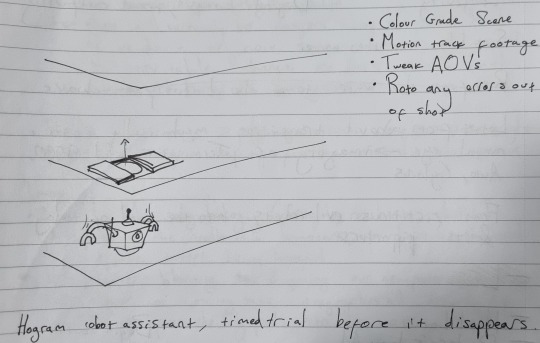 • Colour Grade Scene
• Motion track footage
• Tweak AOVs
• Roto any errors out
of shot
Hogram robot assistant, timed trial before it disappears.